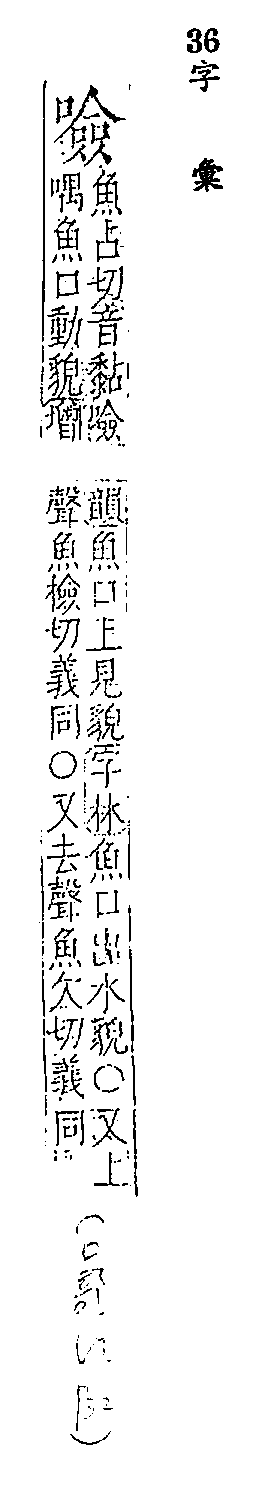 36字彙
噞
魚占切音黏噞
喁魚口動貌增
韻魚口上見貌字林魚口出水貌〇又上
聲魚檢切義同〇又去聲魚欠切義同